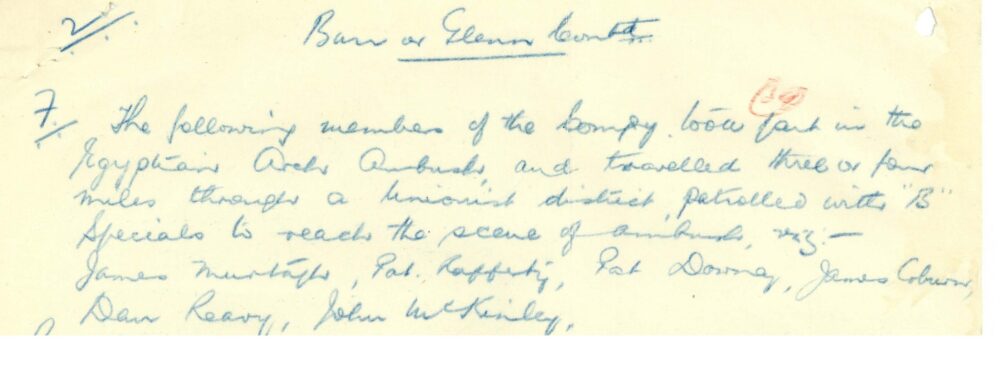 2/. Barr or Glenn Contd.
(39)
7/. The following members of the Compy. took part in the
Egyptian Arch Ambush, and travelled three or four
miles through a Unionist district, patrolled with "B"
Specials to reach the scene of ambush, viz:-
James Murtagh, Pat. Rafferty, Pat Downey, James Coburn,
Dan Reavy, John McKinley,